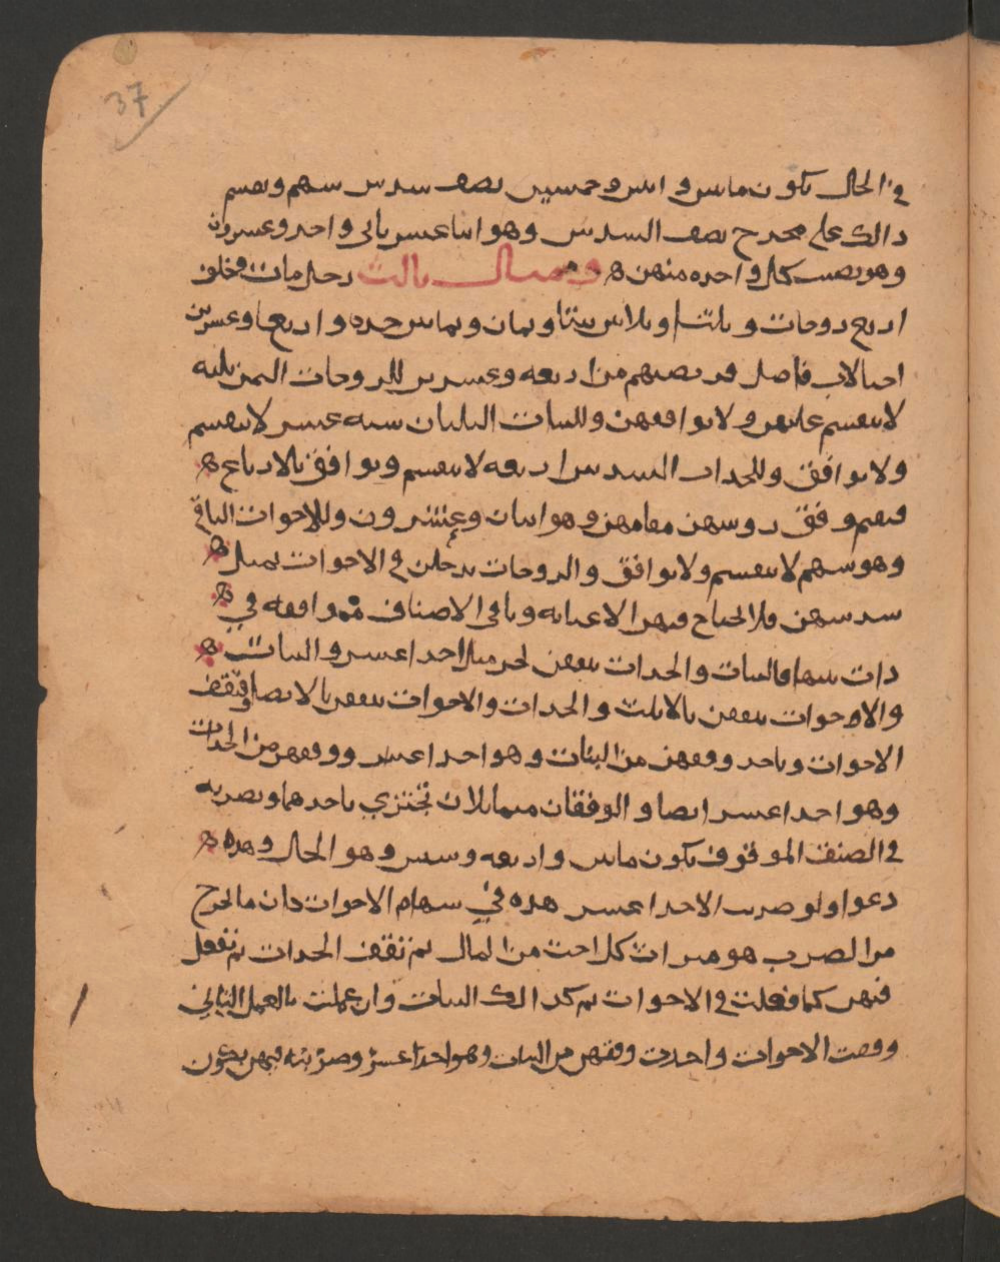 37
في الحال تكون ماىىن واثنين وخمسين نصف سدس سهم ونقسم
ذالك على مخرج نصف السدس وهو اثنا عشر ياتي واحد وعشرون
وهو نصيب كل واحده منهن ومثال ثالث رجل مات وخلف
اربع زوجات وثلثا وثلاثين بنتا وثمان وثمانين جده واربعا وعشرين
اختا لاب فاصل فريضتهم من اربعه وعشرين للزوجات الثمن ثلثه
لا ينقسم عليهن ولا يوافقهن وللبنات الثلثان سته عشر لا ينقسم
ولا يوافق وللجدات السدس اربعه لا ينقسم ويوافق بالارباع
فيقيم وفق روسهن مقامهن وهو اثنان وعشرون وللاخوات الباقي
وهو سهم لا ينقسم ولا يوافق والزوجات يدخلن في الاخوات لمثل
سدسهن فلا تحتاج فيهن الا عنايه وباقي الاصناف موافقه في
ذات بينها فالبنات والجدات يتفقن بجزء من احدا عشر والبنات
والاخوات يتفقن بالاثلاث والجدات والاخوات يتفقن بالانصاف فتقف
الاخوات وتاخذ وفقهن من البنات وهو احدا عشر ووفقهن من الجدات
وهو احدا عشر ايضا والوفقان متماثلان تجتزي باحدهما وتضربه
في الصنف الموقوف تكون ماىىن واربعه وستين وهو الحال وهذه
دعوا ولو ضربت الاحدا عشر هذه في سهام الاخوات كان ما خرج
من الضرب هو ميراث كل اخت من المال ثم تقف الجدات ثم تفعل
فيهن كما فعلت في الاخوات ثم كذالك البنات وان عملت بالعمل الثاني
وقفت الاخوات واخذت وفقهن من البنات وهو احدا عشر وضربته فيهن يكون